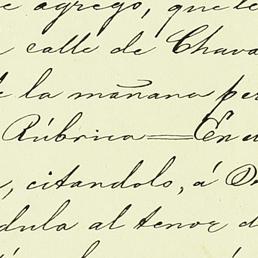 e agregó, que le
calle de Chava
de la mañana per
Rúbrica=En e
, citandolo, á D
dula al tenor d